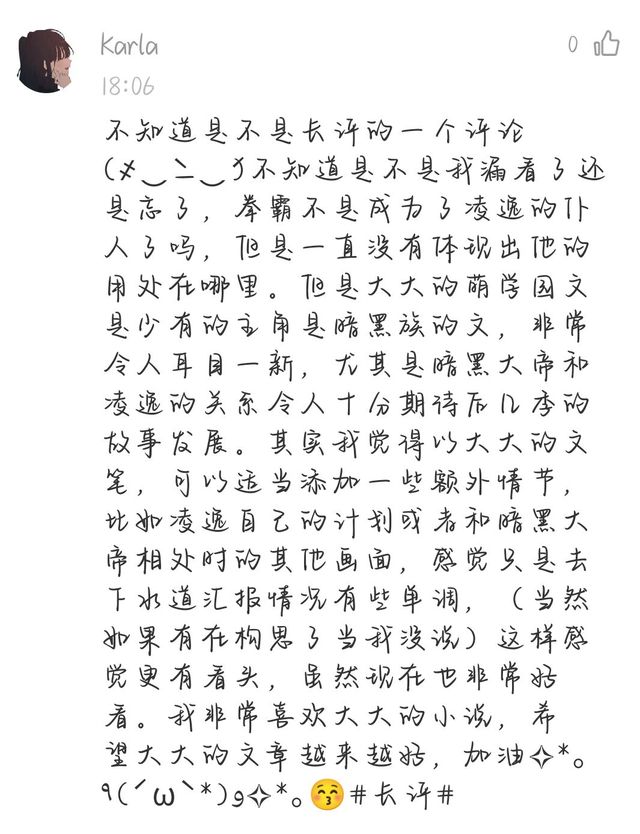 Karla
0
18:06
不知道是不是长评的一个评论
(ﾒ‿ﾆ‿ﾒ)不知道是不是我漏看了还
是忘了，拳霸不是成为了凌逸的仆
人了吗，但是一直没有体现出他的
用处在哪里。但是大大的萌学园文
是少有的主角是暗黑族的文，非常
令人耳目一新，尤其是暗黑大帝和
凌逸的关系令人十分期待后几季的
故事发展。其实我觉得以大大的文
笔，可以适当添加一些额外情节，
比如凌逸自己的计划或者和暗黑大
帝相处时的其他画面，感觉只是去
下水道汇报情况有些单调，（当然
如果有在构思了当我没说）这样感
觉更有看头，虽然现在也非常好
看。我非常喜欢大大的小说，希
望大大的文章越来越好，加油✧*。
٩(ˊωˋ*)و✧*。😚#长评#